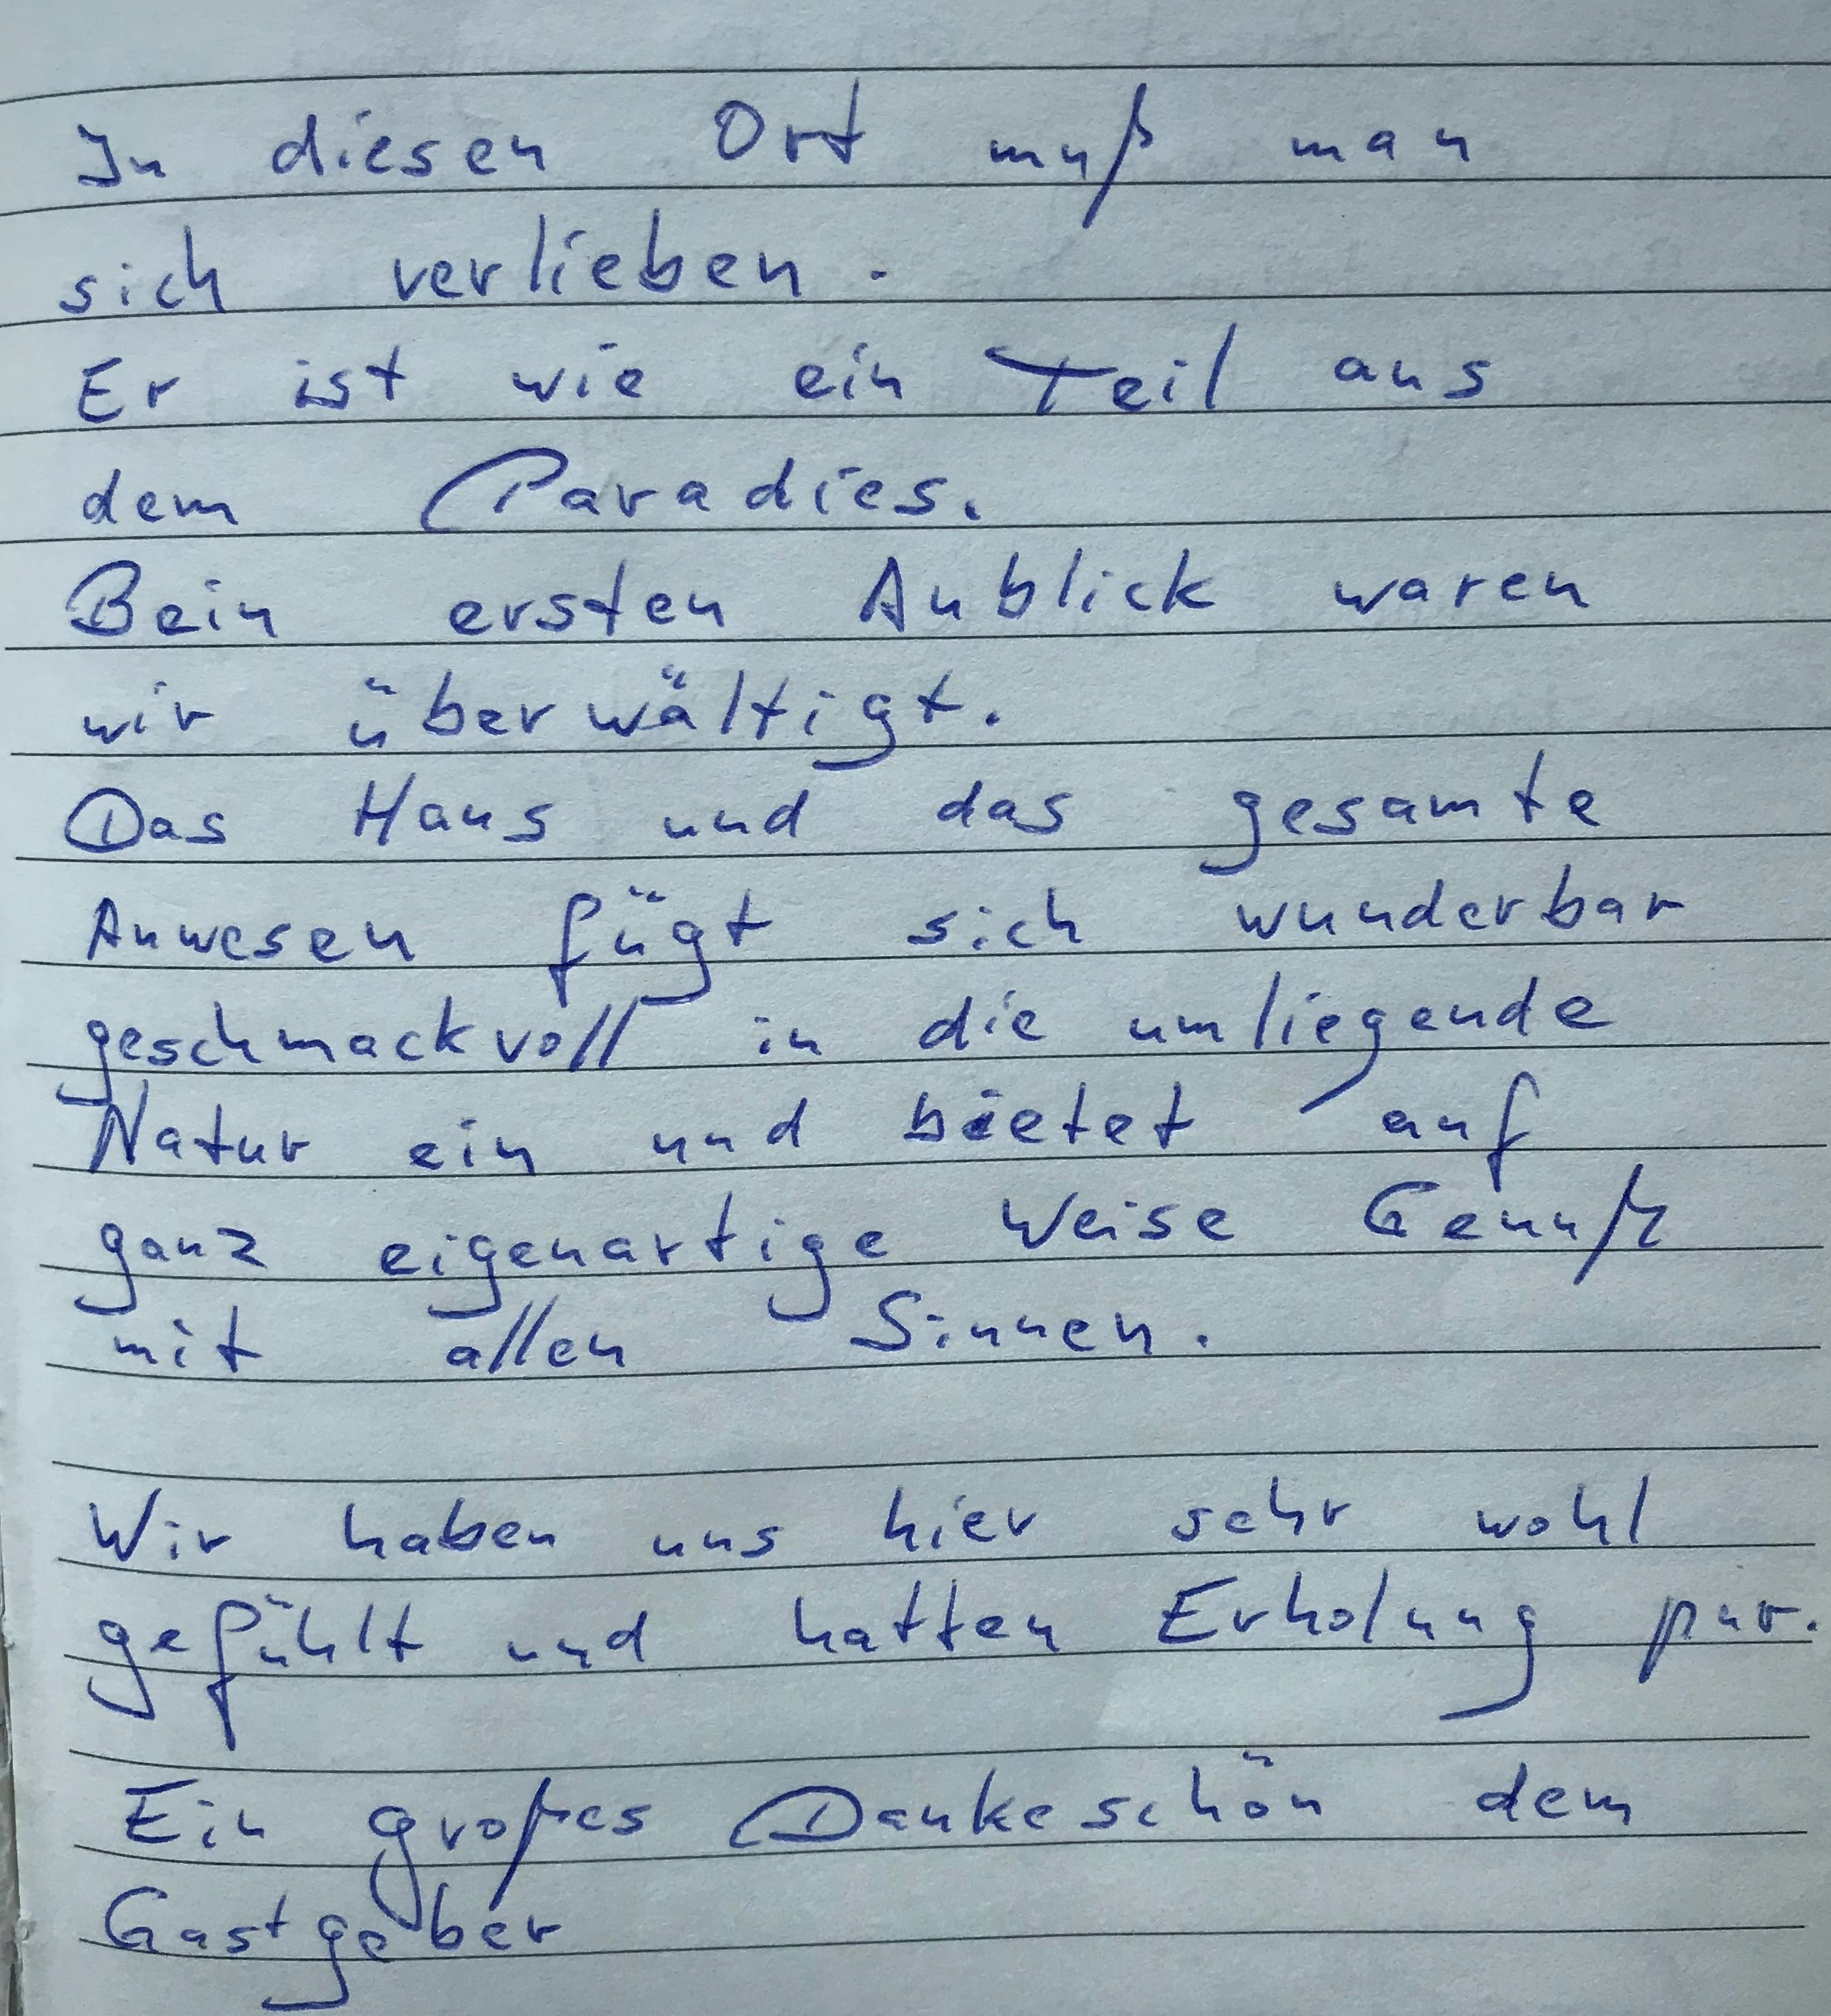 In diesen Ort muß man
sich verlieben.
Er ist wie ein Teil aus
dem Paradies.
Bein ersten Anblick waren
wir überwältigt.
Das Haus und das gesamte
Anwesen fügt sich wunderbar
geschmackvoll in die umliegende
Natur ein und bietet auf
ganz eigenartige Weise Genuß
mit allen Sinnen.
Wir haben uns hier sehr wohl
gefühlt und hatten Erholung pur.
Ein großes Dankeschön dem
Gastgeber